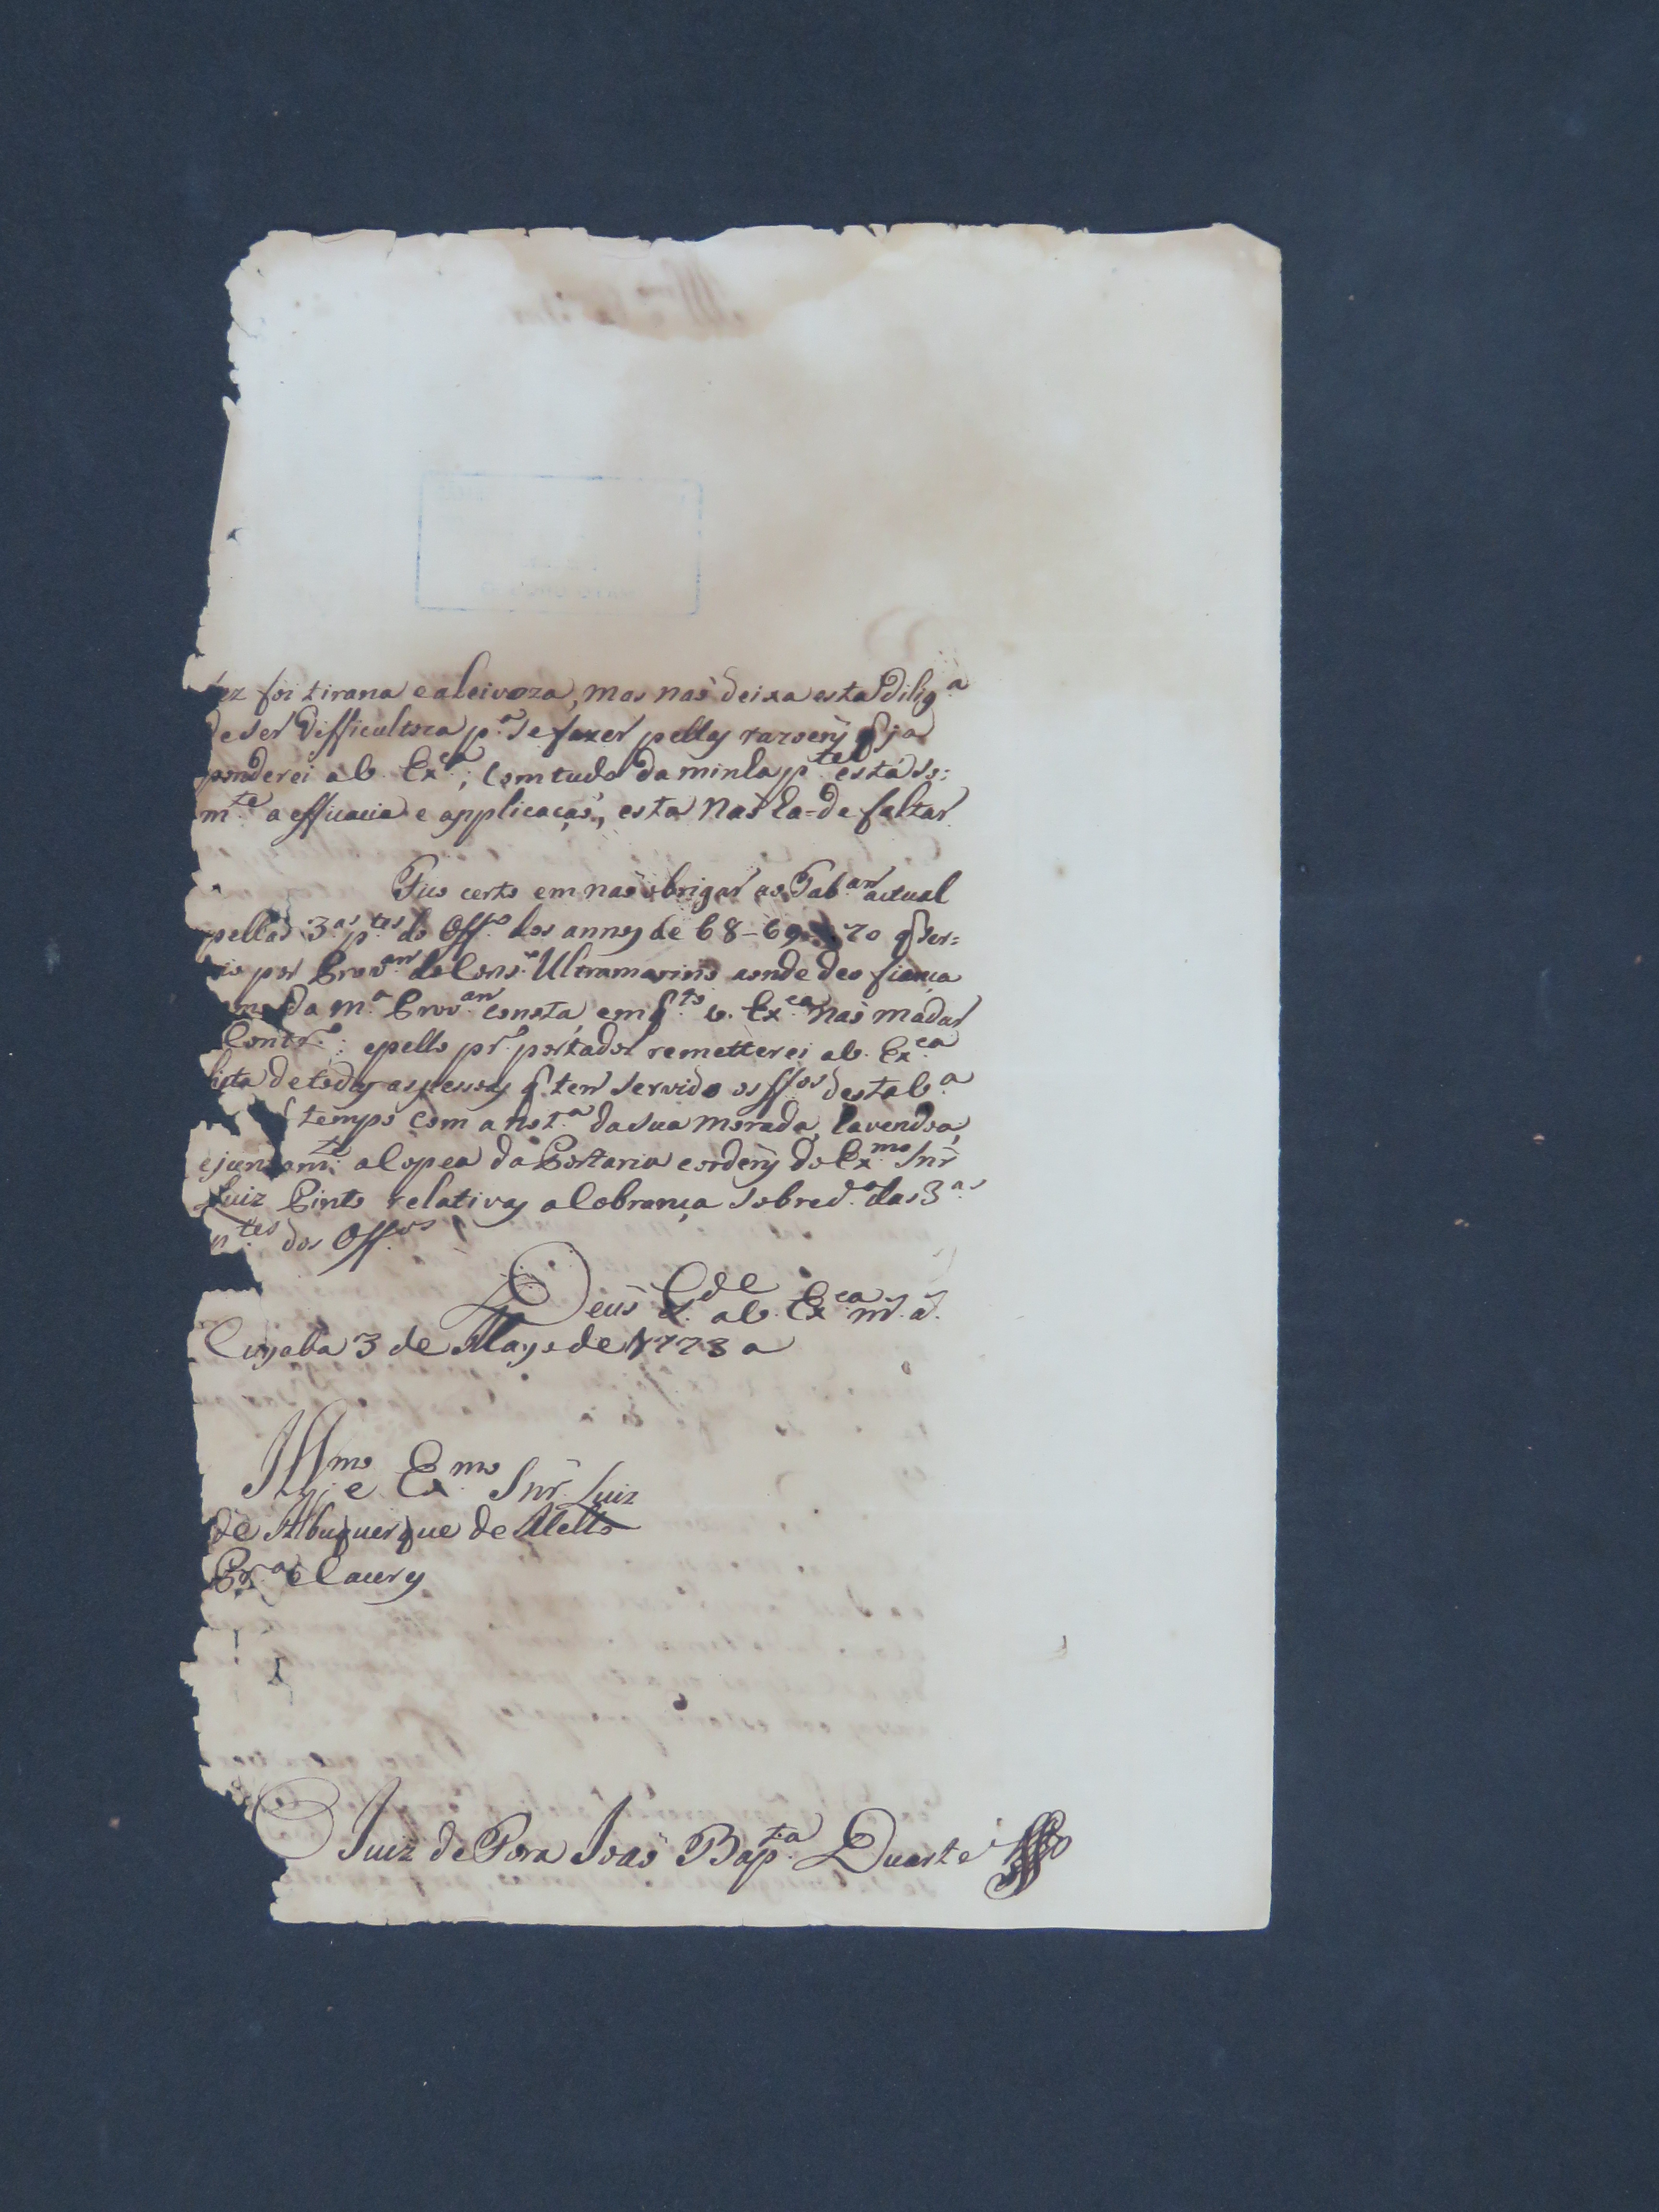 fez foi tirana e aleivoza, mas naõ deixa esta dilig.ª
de ser difficultoza p.ª se fazer pellas razoeñs q̃ ja
ponderei a V. Ex.ca; Com tudo da minha p.te está só:
m.te a efficacia e applicaçaõ, esta naõ ha=de faltar.
Fico certo em naõ obrigar ao Tab.am actual
pellas 3.as p.tes do Off.o dos annos de 68-69 70 q̃ ser=
vio por Prov.am do Cons.o Ultramarino aonde deo fiança
da m.ª Prov.am consta, em q.to V. Ex.ca naõ madar
Contr.o: e pello pr.o portador remetterei a V. Ex.ca
lista de todas as pessoas q̃ tem servido os off.os desta V.ª
tempo com a not.ª da sua morada, havendoa,
e juntam.te a Copea da Portaria e ordeñs do Ex.mo Snr̃
Luiz Pinto relativas a Cobrança sobred.ª das 3.as
p.tes dos Off.os
Deus G.de a V. Ex.ca m.s a.s
Cuyaba 3 de Mayo de 1773 a
Ill.mo e Ex.mo Snr̃ Luiz
de Albuquerque de Mello
Pr.ª e Caceres
O Juiz de Fora Joaõ Bap.ta Duarte